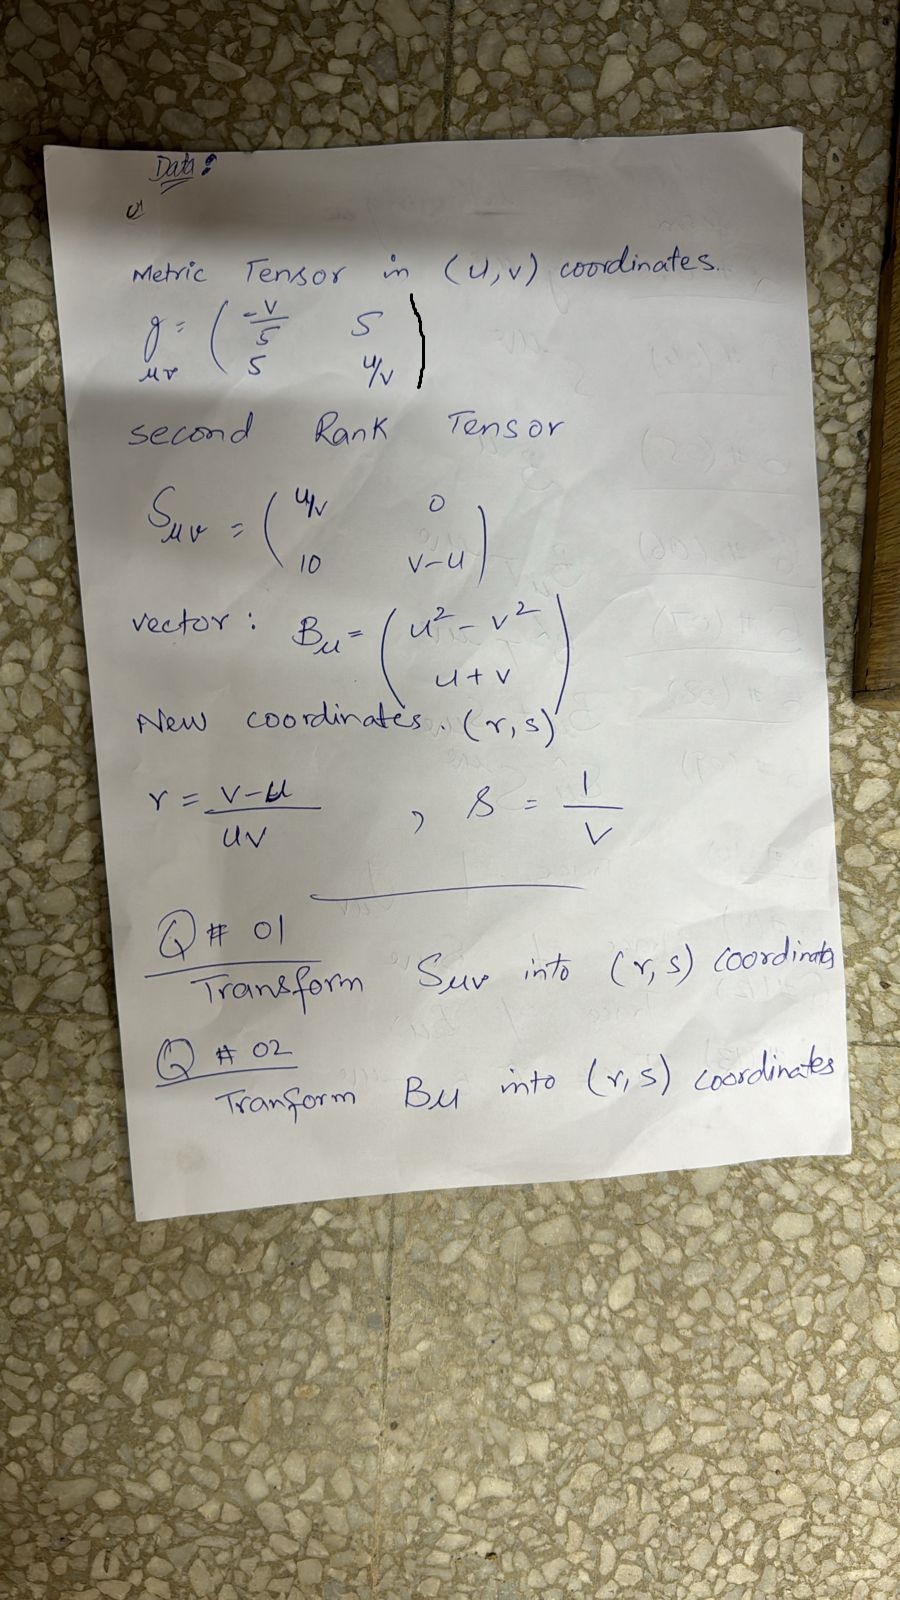 Data:
Metric Tensor in (u,v) coordinates.
g_μν = ( -v/5 5
5 u/v )
second Rank Tensor
S_μν = ( u/v 0
10 v-u )
vector: B_μ = ( u² - v²
u+v )
New coordinates. (r,s)
r = v-u / uv , s = 1/v
Q # 01
Transform Sμν into (r,s) coordinates
Q # 02
Tranform Bμ into (r,s) coordinates